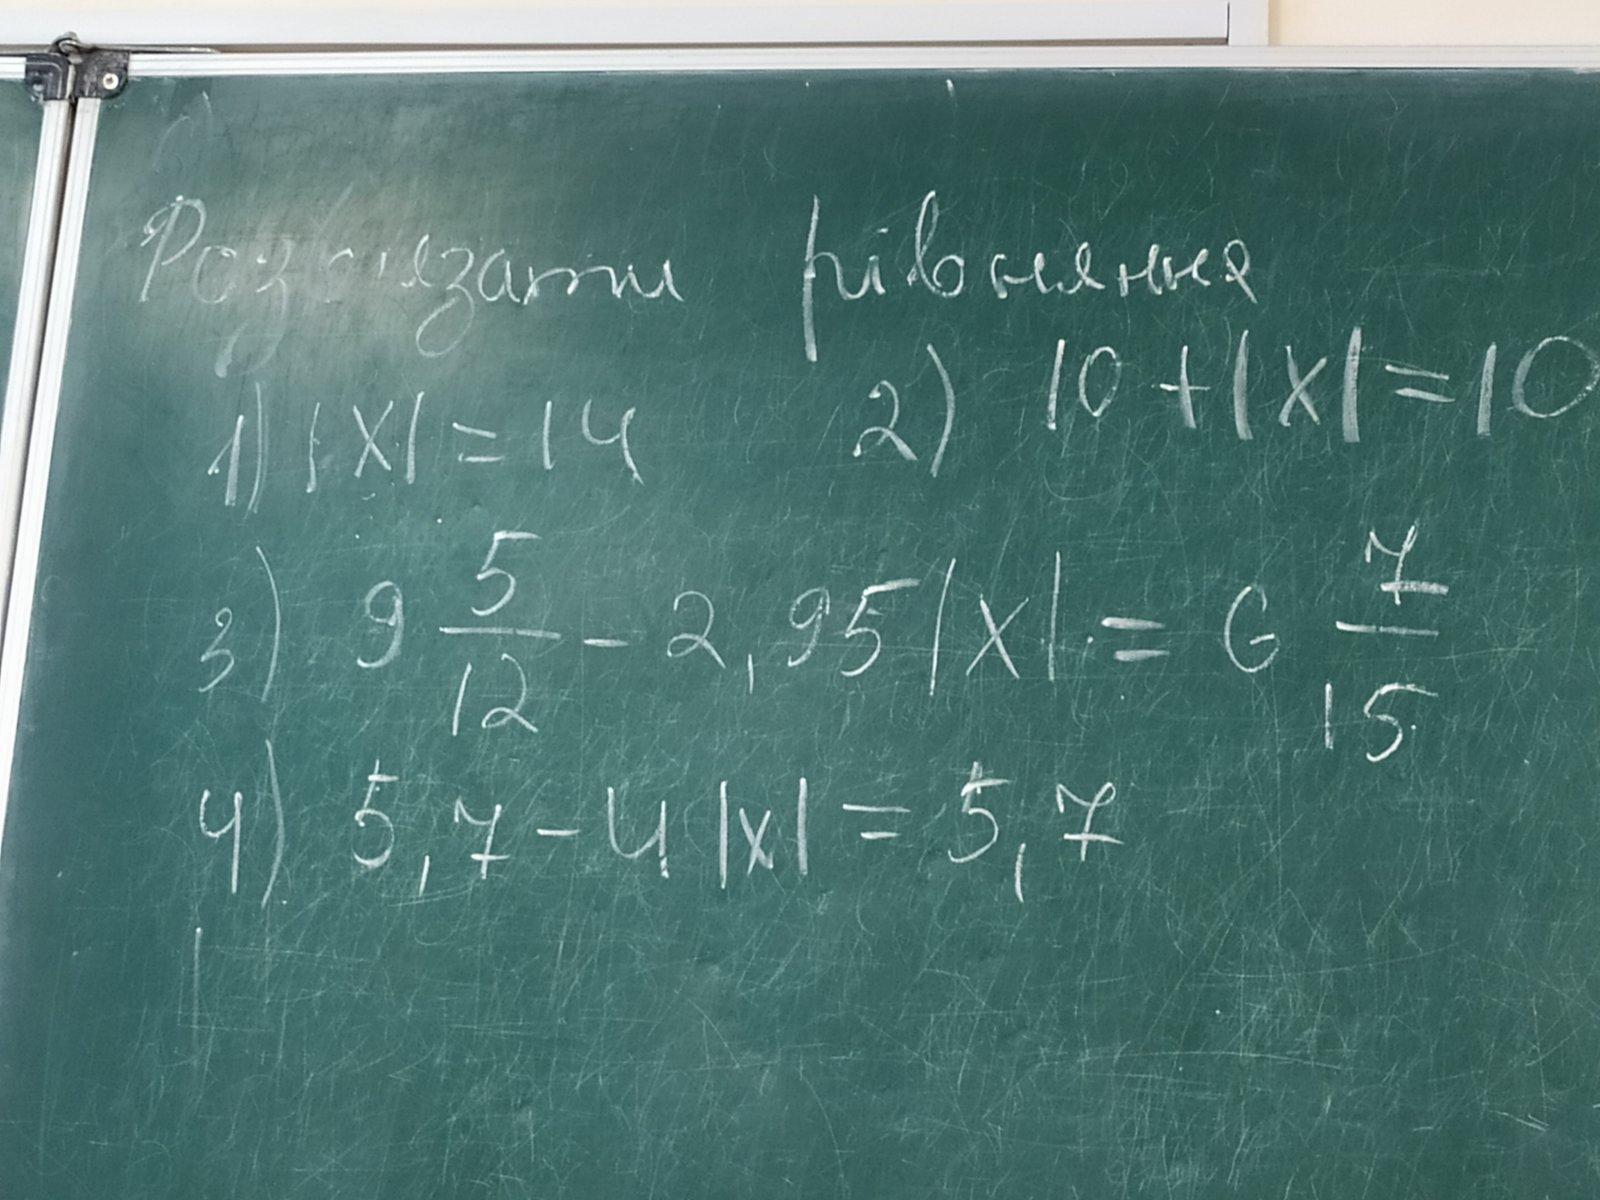 Розв'язати рівняння
1) |x| = 14 2) 10 + |x| = 10
3) 9 5/12 - 2,95|x| = 6 7/15
4) 5,7 - 4|x| = 5,7